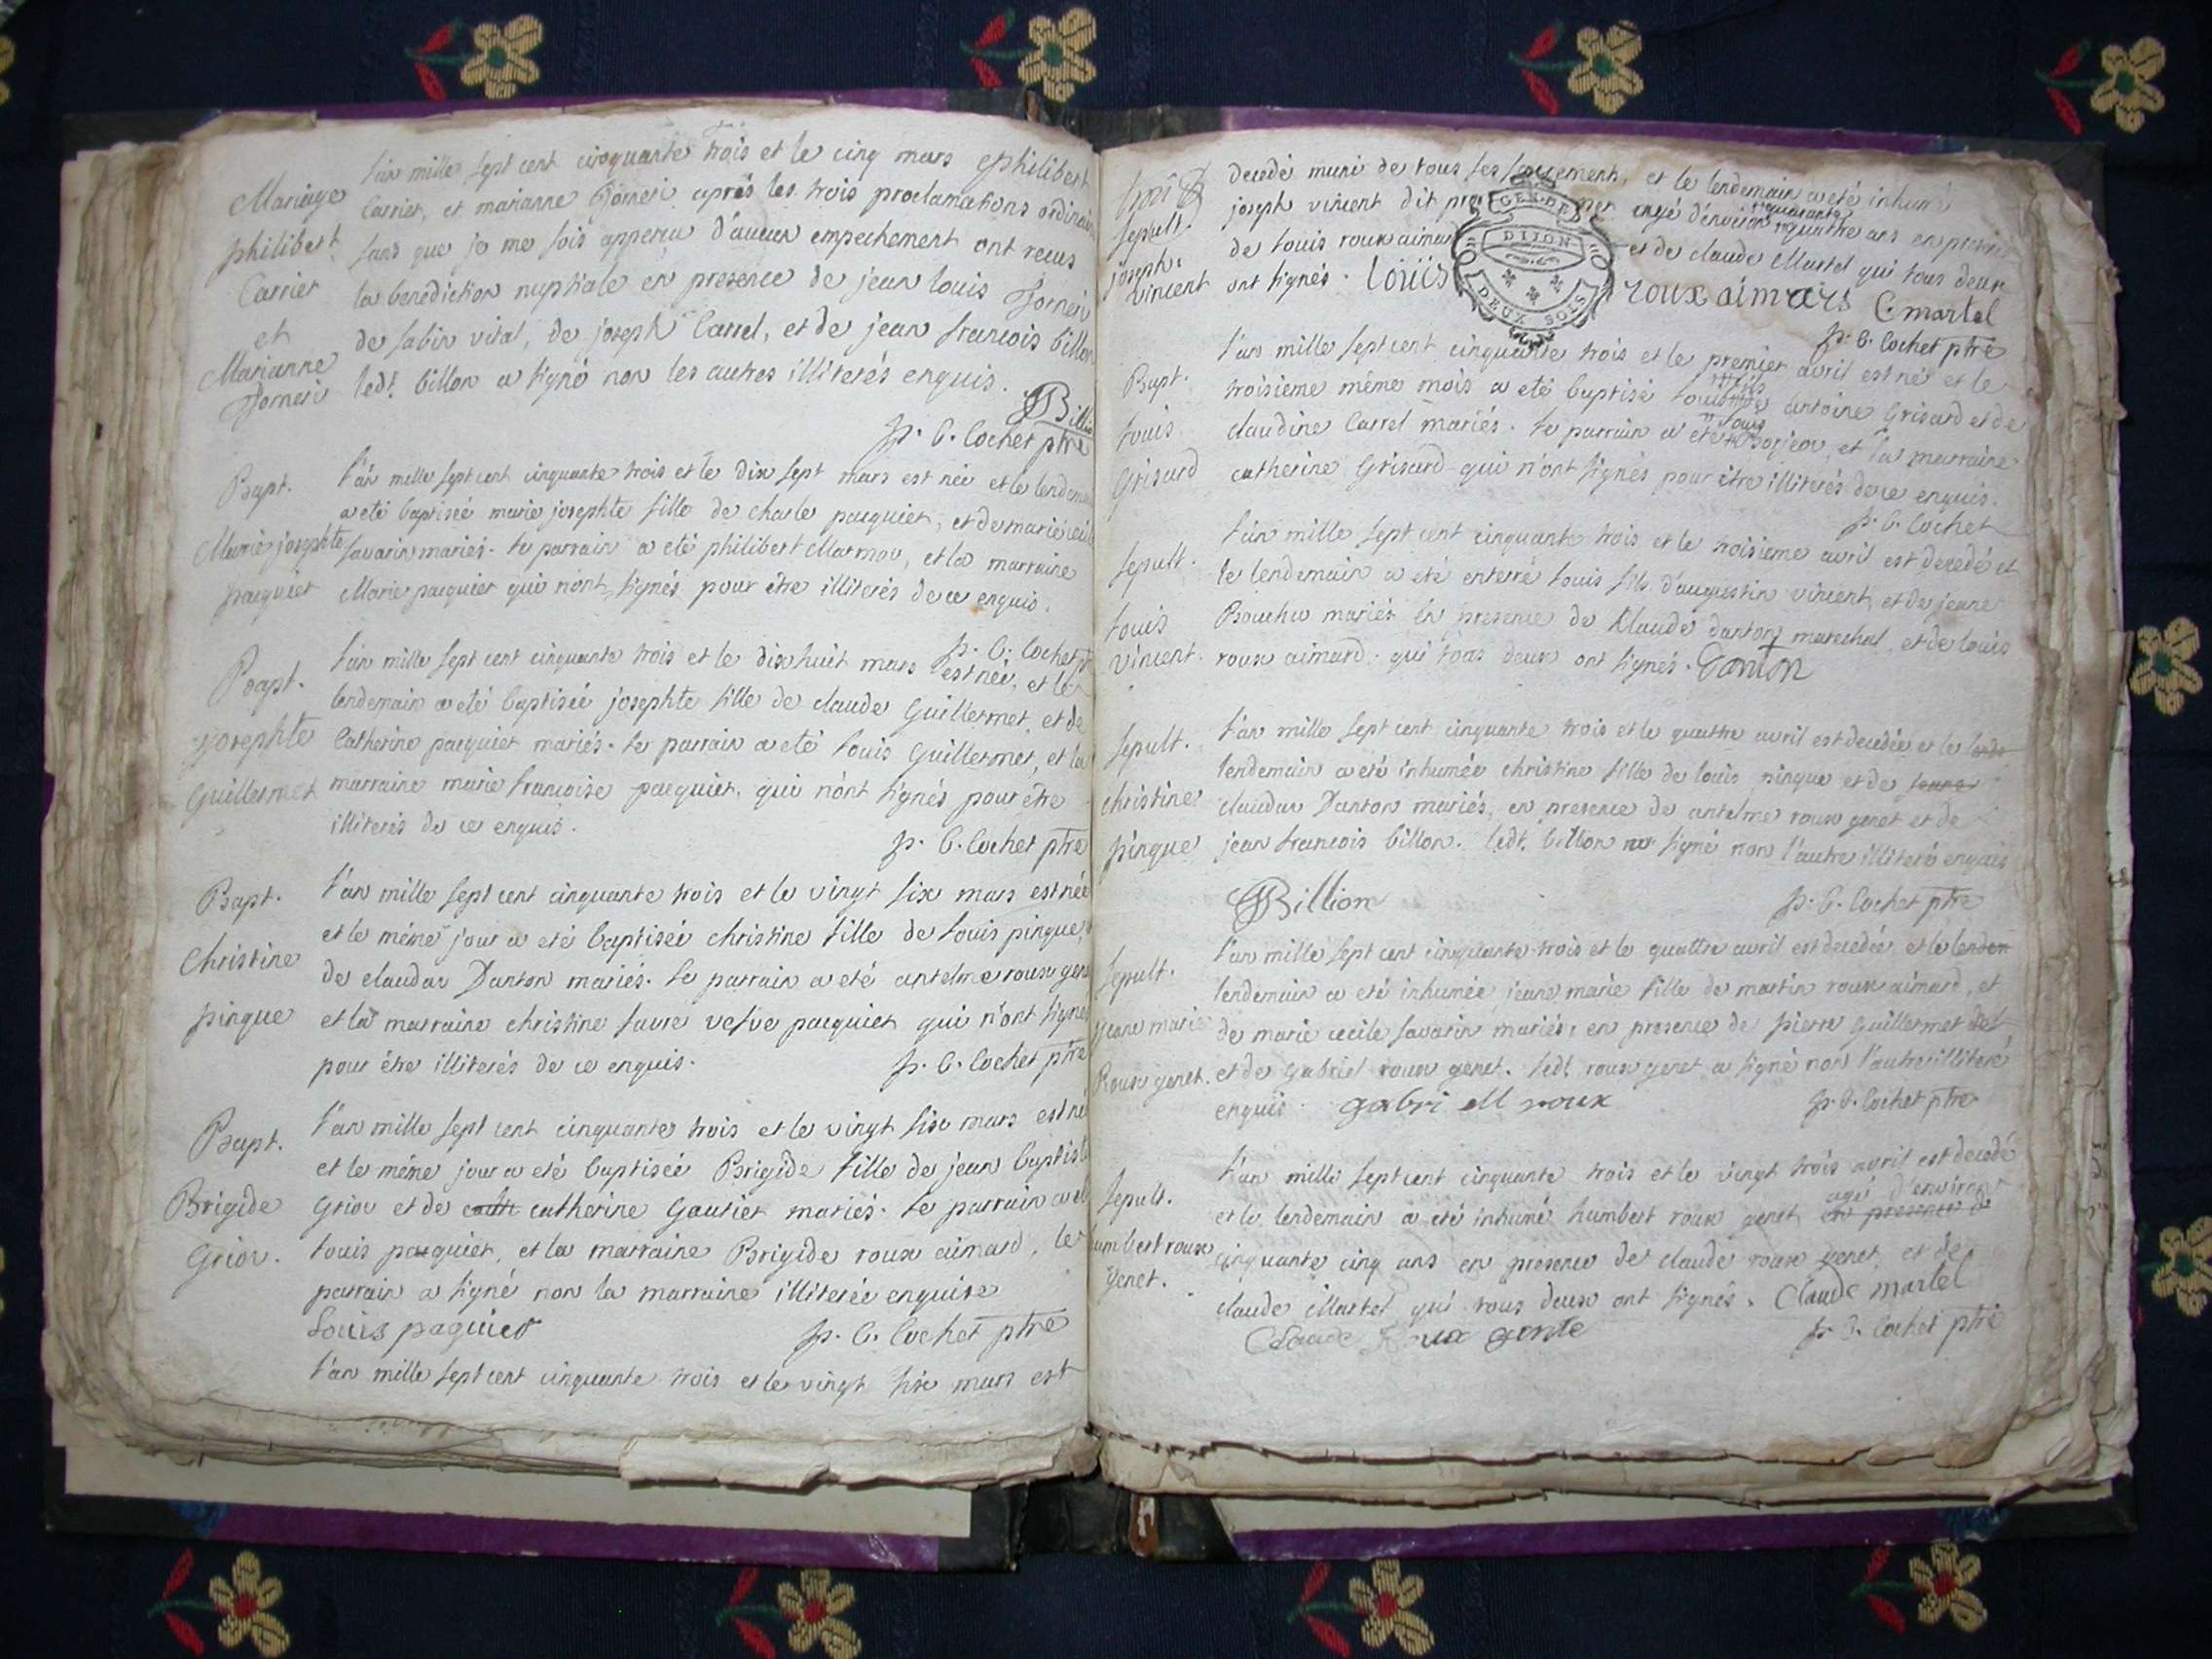 Mariage
philibert
Carrier
et
Marianne
Jorneri
l'an mille sept cent cinquante trois et le cinq mars philibert
Carrier, et marianne Jorneri après les trois proclamations ordinaires
sans que je me sois apperçu d'aucun empechement ont reçus
la benediction nuptiale en presence de jean louis Jorneri
de sabin vital, de joseph Carrel, et de jean francois billon
ledt. billon a signé non les autres illiterés enquis.
JBillion
p. C. Cochet ptre
Bapt.
Marie josephte
paquiet
l'an mille sept cent cinquante trois et le dix sept mars est née et le lendemain
a eté baptiseé marie josephte fille de charle paquiet, et de marie
savarin mariés. Le parrain a eté philibert Marmou, et la marraine
Marie paquiet qui n'ont signés pour être illiterés de ce enquis.
p. C. Cochet
Bapt.
josephte
Guillermet
l'an mille sept cent cinquante trois et le dix huit mars est née, et le
lendemain a eté baptiseé josephte fille de claude Guillermet, et de
Catherine paquiet mariés. Le parrain a eté Louis Guillermet, et la
marraine marie francoise paquiet. qui n'ont signés pour être
illiterés de ce enquis.
p. C. Cochet ptre
Bapt.
Christine
pingue
l'an mille sept cent cinquante trois et le vingt six mars est née
et le même jour a eté baptiseé christine fille de Louis pingue,
de claudar Danton mariés. Le parrain a eté antelme roux genet
et la marraine christine favre vefve paquiet qui n'ont signés
pour être illiterés de ce enquis.
p. C. Cochet ptre
Bapt.
Brigide
Grior.
l'an mille sept cent cinquante trois et le vingt six mars est née
et le même jour a eté baptiseé Brigide fille de jean baptiste
Grior et de catherine Gautier mariés. Le parrain a eté
Louis paquiet, et la marraine Brigide roux aimard, le
parrain a signé non la marraine illitereé enquise
Louis paquiet
p. C. Cochet ptre
l'an mille sept cent cinquante trois et le vingt six mars est
Sepult.
joseph
vincent
decedé muni de tous ses sacrements, et le lendemain a eté inhumé
joseph vincent dit agé d'environ quarante quatre ans en presence
de Louis roux aimard et de claude Martel qui tous deux
ont signés. Loüis roux aimars C martel
p. C. Cochet ptre
Bapt.
Louis
Grisard
l'an mille sept cent cinquante trois et le premier avril est né et le
troisieme même mois a eté baptisé Louis fils antoine Grisard et de
claudine Carrel mariés. Le parrain a eté Louis Borjon, et la marraine
catherine Grisard qui n'ont signés pour être illiterés de ce enquis.
p. C. Cochet
Sepult.
Louis
vincent.
l'an mille sept cent cinquante trois et le troisieme avril est decedé et
le lendemain a eté enterré Louis fils d'augustin vincent, et de jeane
Bouchu mariés en presence de Klaude danton marechal, et de Louis
roux aimard. qui tous deux ont signés. Danton
Sepult.
christine
pingue
l'an mille sept cent cinquante trois et le quattre avril est decedée et le
lendemain a eté inhumée christine fille de Louis pingue et de
claudar Danton mariés, en presence de antelme roux genet et de
jean francois billon. ledt. billon a signé non l'autre illiteré enquis
JBillion
p. C. Cochet ptre
Sepult.
Jeane marie
Roux genet.
l'an mille sept cent cinquante trois et le quattre avril est decedée, et le lenden
lendemain a eté inhumée jeane marie fille de martin roux aimard, et
de marie cecile savarin mariés, en presence de pierre Guillermet
et de Gabriel roux genet. ledt. roux genet a signé non l'autre illiteré
enquis. gabriell roux
p. C. Cochet ptre
Sepult.
humbert roux
genet.
l'an mille sept cent cinquante trois et le vingt trois avril est decedé
et le lendemain a eté inhumé humbert roux genet en presence de agé d'environ
cinquante cinq ans en presence de claude roux genet, et de
claude Martel qui tous deux ont signés. Claude martel
Claude Roux gente
p. C. Cochet ptre
GEN DE
DIJON
DEUX SOLS